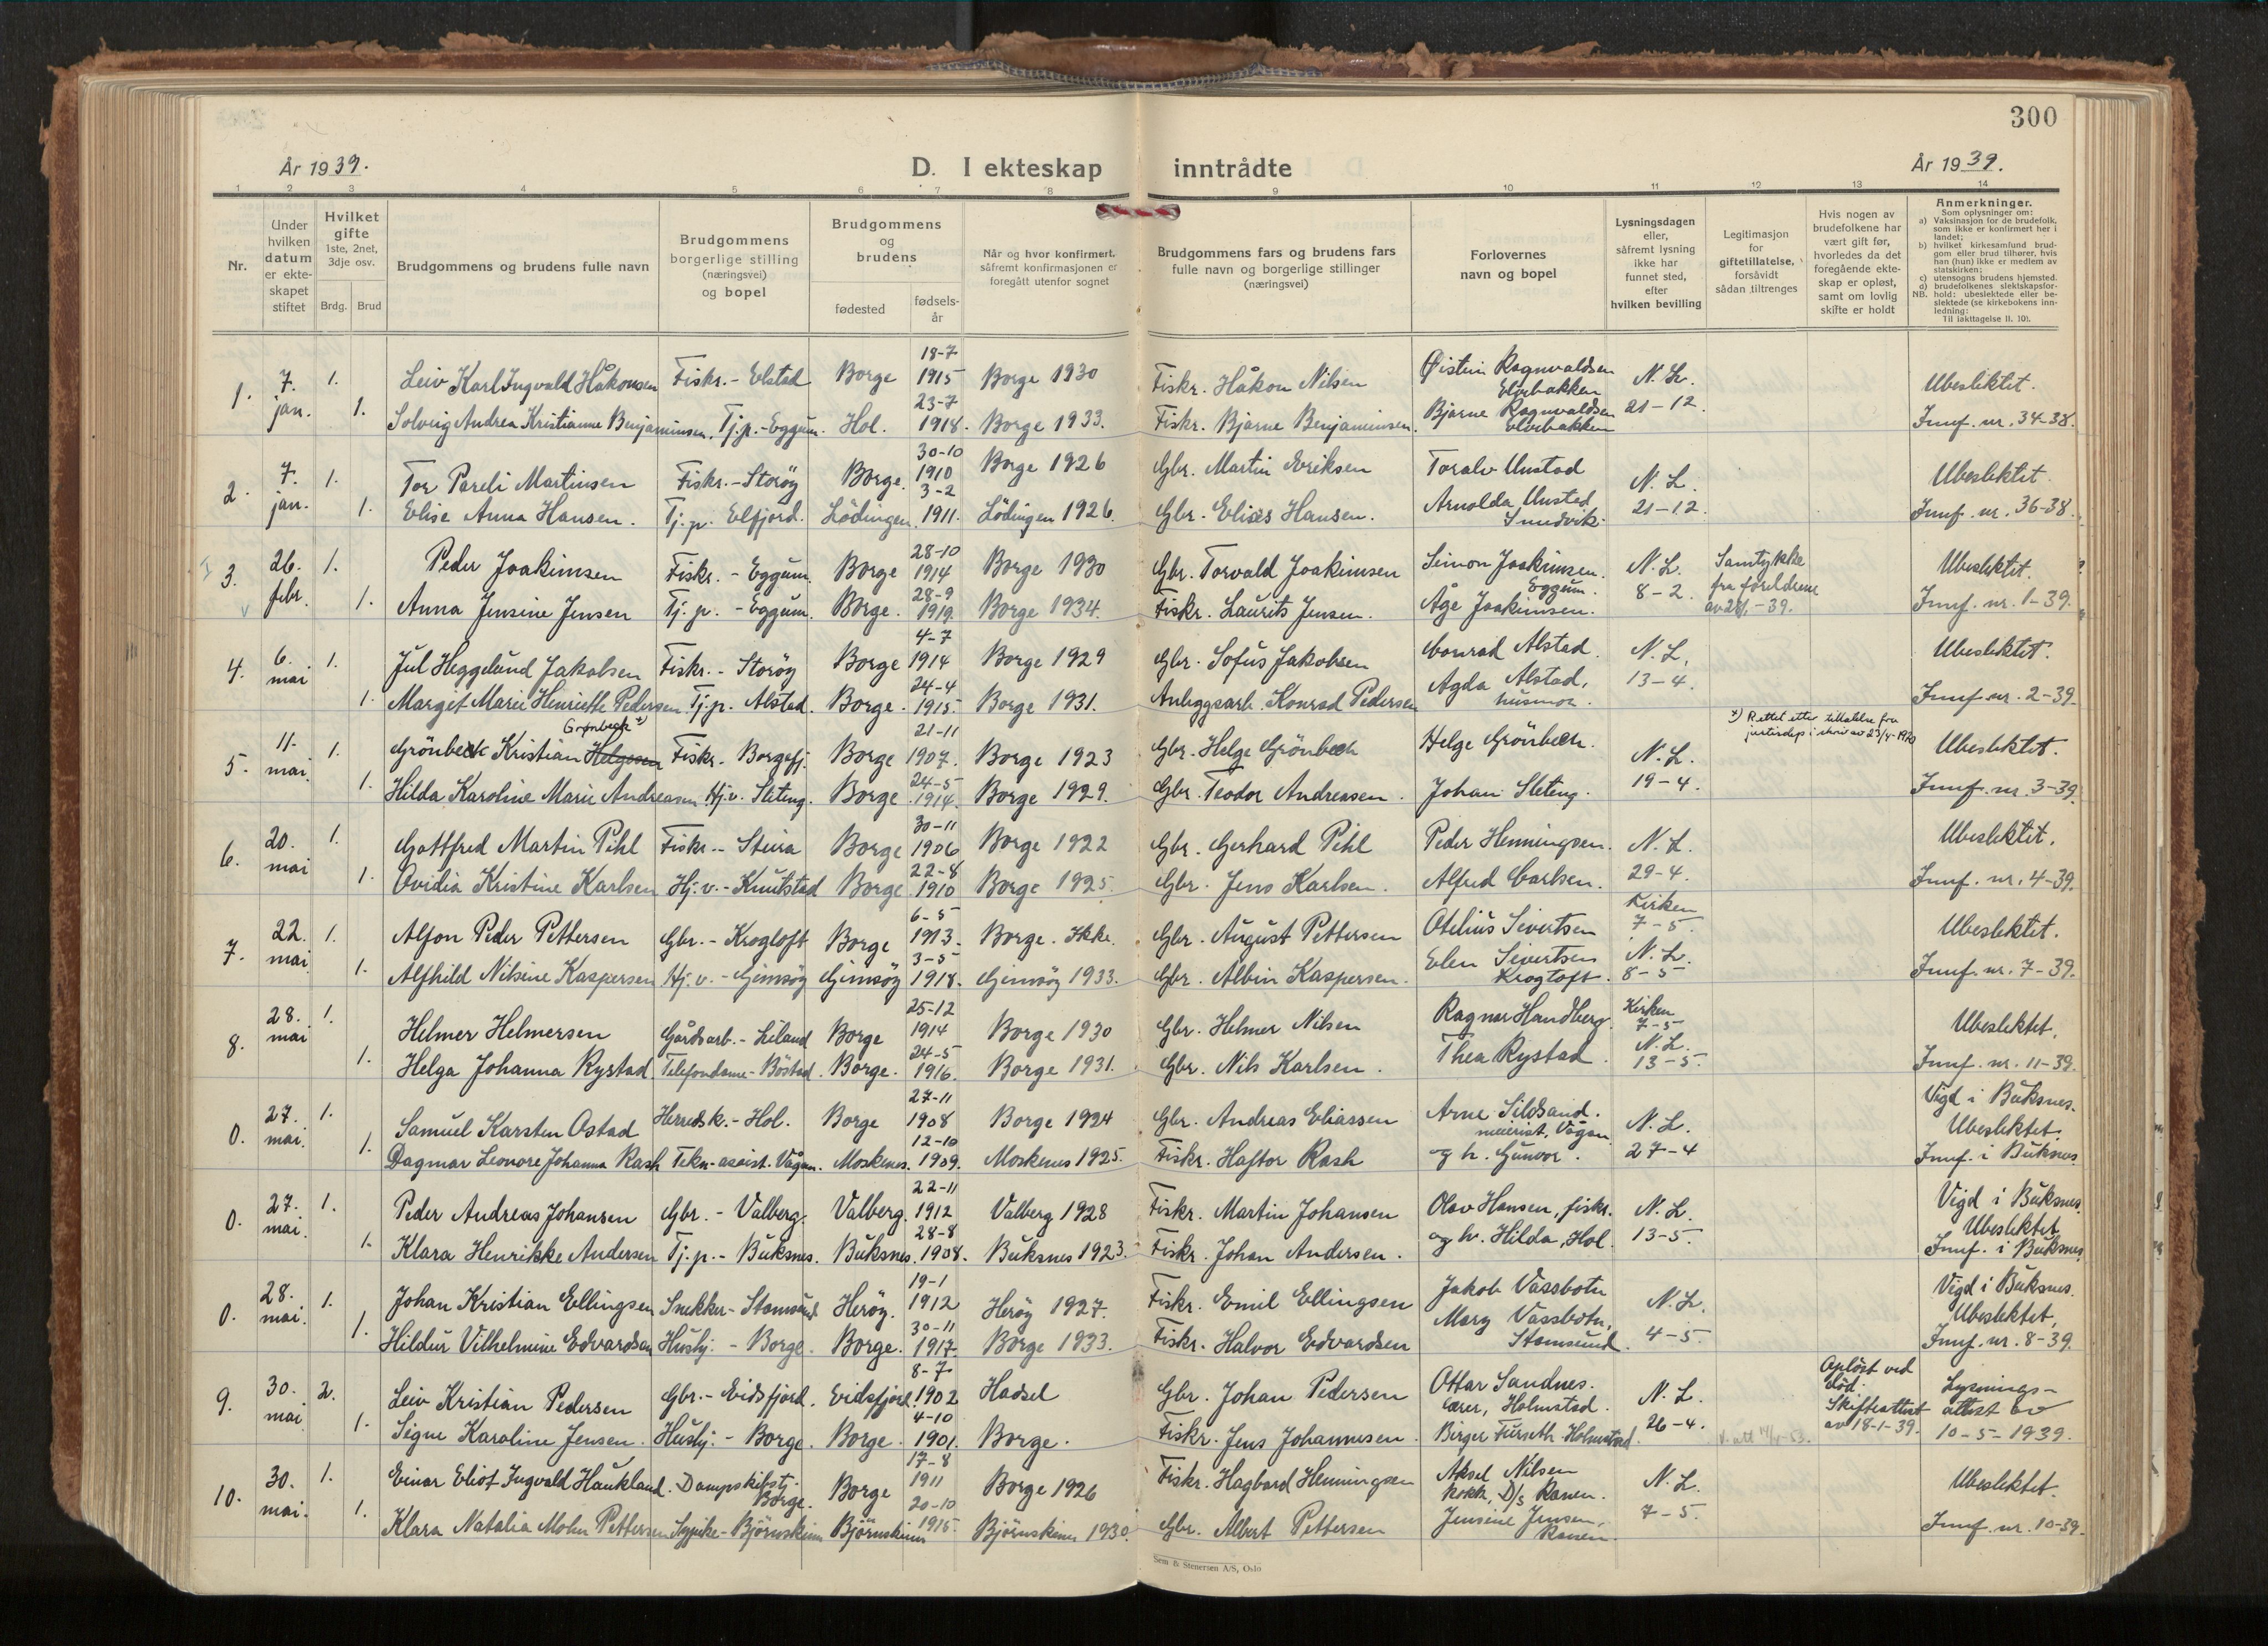 300
År 1939.
D. I ekteskap inntrådte
År 1939.
1 2 3 4 5 6 7 8 9 10 11 12 13 14
Nr.
Under hvilken datum er ekteskapet stiftet
Hvilket gifte 1ste, 2net, 3dje osv.
Brdg. Brud
Brudgommens og brudens fulle navn
Brudgommens borgerlige stilling (næringsvei) og bopel
Brudgommens og brudens
fødested
fødselsår
Når og hvor konfirmert, såfremt konfirmasjonen er foregått utenfor sognet
Brudgommens fars og brudens fars fulle navn og borgerlige stillinger (næringsvei)
Forlovernes navn og bopel
Lysningsdagen eller, såfremt lysning ikke har funnet sted, efter hvilken bevilling
Legitimasjon for giftetillatelse, forsåvidt sådan tiltrenges
Hvis nogen av brudefolkene har vært gift før, hvorledes da det foregående ekteskap er opløst, samt om lovlig skifte er holdt
Anmerkninger.
Som oplysninger om:
a) Vaksinasjon for de brudefolk, som ikke er konfirmert her i landet;
b) hvilket kirkesamfund brudgom eller brud tilhører, hvis han (hun) ikke er medlem av statskirken;
c) utensogns brudens hjemsted.
d) brudefolkenes slektskapsforhold: ubeslektede eller beslektede (se kirkebokens innledning:
NB.
Til iakttagelse II. 10).
1. 7. jan. 1. Leiv Karl Ingvald Håkonsen Fiskr. - Elstad Borge 18-7 1915 Borge 1930 Fiskr. Håkon Nilsen Øistein Ragnvaldsen Elvebakken N. L. 21-12. Ubeslektet.
1. Solveig Andrea Kristianne Benjaminsen. Tj.p. - Eggum. Hol. 23-7 1918. Borge 1933. Fiskr. Bjarne Benjaminsen. Bjarne Ragnvaldsen Elvebakken Innf. nr. 34-38.
2. 7. jan. 1. Tor Pareli Martinsen Fiskr. - Storöy Borge. 30-10 1910 Borge 1926 Gbr. Martin Eriksen Toralv Unstad N. L. 21-12 Ubeslektet.
1. Elise Anna Hansen. Tj.p. Elfjord. Lödingen. 3-2 1911. Lödingen 1926. Gbr. Elises Hansen. Arnolda Unstad, Innf. nr. 36-38.
3. 26. febr. 1. Peder Joakimsen Fiskr. - Eggum. Borge 28-10 1914 Borge 1930 Gbr. Torvald Joakimsen Simon Joakimsen. Eggum. N. L. 8-2. Samtykke fra foreldrene Ubeslektet.
1. Anna Jensine Jensen Tj.p. - Eggum. Borge. 28-9 1919. Borge 1934. Fiskr. Laurits Jensen. Åge Joakimsen. Innf. nr. 1-39.
4. 6. mai 1. Jul Heggelund Jakobsen Fiskr. - Storöy Borge 4-7 1914 Borge 1929 Gbr. Sofus Jakobsen Conrad Alstad. N. L. 13-4. Ubeslektet.
1. Margit Marie Henriette Pedersen. Tj.p. Alstad. Borge. 24-4 1915. Borge 1931. Anleggsarb. Konrad Pedersen Agda Alstad, husmor. Innf. nr. 2-39.
Grønbech x)
5. 11. mai. 1. Grönbeck Kristian Helgesen Fiskr. Borgefj. Borge 21-11 1907. Borge 1923 Gbr. Helge Grönbech Helge Grönbech. N. L. 19-4. x) Rettet etter tillatelse fra justisdep i skriv av 23/4-1970 Ubeslektet.
1. Hilda Karoline Marie Andreasen. Hj.v. Sleteng. Borge 24-5 1914. Borge 1929. Gbr. Teodor Andreasen. Johan Sleteng. Innf. nr. 3-39.
6. 20. mai 1. Gottfred Martin Pihl Fiskr. - Steira Borge 30-11 1906 Borge 1922 Gbr. Gerhard Pihl Peder Henningsen. N. L. 29-4. Ubeslektet.
1. Ovidia Kristine Karlsen Hj.v. - Knutstad Borge 22-8 1910 Borge 1925. Gbr. Jens Karlsen. Alfred Carlsen. Innf. nr. 4-39.
7. 22. mai 1. Alfon Peder Pettersen Gbr. - Krogtoft Borge 6-5 1913. Borge. Ikke. Gbr. August Pettersen Otelius Sivertsen Kirken 7-5. Ubeslektet.
1. Alfhild Nilsine Kaspersen Hj.v. - Gimsöy Gimsöy 3-5 1918. Gimsöy 1933. Gbr. Albin Kaspersen. Elen Sivertsen Krogtoft. N. L. 8-5 Innf. nr. 7-39.
8. 28. mai 1. Helmer Helmersen Gårdsarb. - Liland Borge 25-12 1914 Borge 1930 Gbr. Helmer Nilsen Ragnar Handberg. Kirken 7-5 Ubeslektet.
1. Helga Johanna Rystad. Telefondame - Böstad. Borge. 24-5 1916. Borge 1931. Gbr. Nils Karlsen. Thea Rystad. N. L. 13-5. Innf. nr. 11-39.
0. 27. mai. 1. Samuel Karsten Ostad Herredsk. - Hol. Borge 27-11 1908 Borge 1924 Gbr. Andreas Eliassen Arne Sildsand. meierist, Vågan. N. L. 27-4 Vigd i Buksnes. Ubeslektet.
1. Dagmar Leonore Johanna Rask Tekn-assist. Vågan. Moskenes. 12-10 1909. Moskenes 1925. Fiskr. Haftor Rask og h. Gunvor. Innf. i Buksnes
0. 27. mai. 1. Peder Andreas Johansen Gbr. - Valberg. Valberg. 22-11 1912 Valberg 1928 Fiskr. Martin Johansen Olav Hansen, fiskr. N. L. 13-5. Vigd i Buksnes. Ubeslektet.
1. Klara Henrikke Andersen Tj.p. - Buksnes. Buksnes. 28-8 1908. Buksnes 1923. Fiskr. Johan Andersen. og h. Hilda, Hol. Innf. i Buksnes
0. 28. mai. 1. Johan Kristian Ellingsen Snekker - Stamsund. Heröy. 19-1 1912 Heröy 1927. Fiskr. Emil Ellingsen Jakob Vassbotn N. L. 4-5. Vigd i Buksnes. Ubeslektet.
1. Hildur Vilhelmine Edvardsen Hushj. - Borge. Borge. 30-11 1917. Borge 1933. Fiskr. Halvor Edvardsen Mary Vassbotn, Stamsund. Innf. nr. 8-39.
9. 30. mai 2. Leiv Kristian Pedersen Gbr. - Eidsfjord. Eidsfjord. 8-7 1902 Hadsel Gbr. Johan Pedersen Ottar Sandnes. lærer, Holmstad. N. L. 26-4. Opløst ved död. Skifteattest av 18-1-39. Lysningsattest av 10-5-1939.
1. Signe Karoline Jensen. Hushj. - Borge. Borge. 4-10 1901. Borge. Fiskr. Jens Johannesen. Birger Furseth Holmstad.
10. 30. mai. 1. Einar Eliot Ingvald Haukland. Dampskibstj. Borge. Borge 17-8 1911 Borge 1926 Fiskr. Hagbard Henningsen Aksel Nilsen kokk, D/s Ranen. N. L. 7-5. Ubeslektet.
1. Klara Natalia Molen Pettersen Sypike - Björnskinn Björnskinn 20-10 1915. Björnskinn 1930. Gbr. Albert Pettersen Jensine Jensen, Ranen. Innf. nr. 10-39.
Sem & Stenersen A/S, Oslo